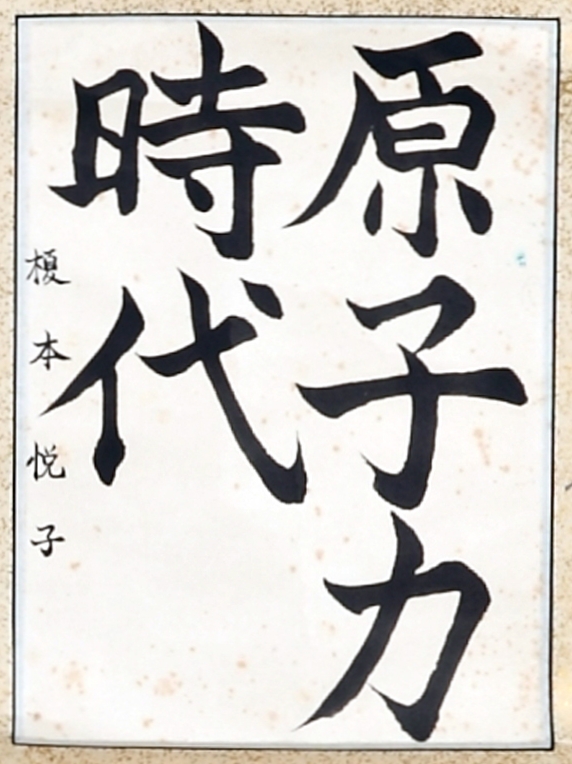 原子力
時代
榎本悦子